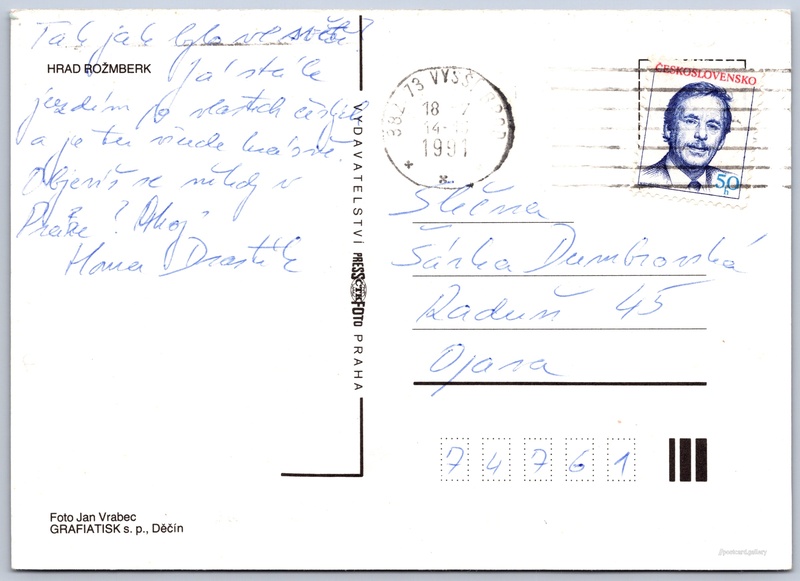 Tak jak bylo ve světě?
HRAD ROŽMBERK
Já stále
jezdím po vlastech českých
a je tu všude krásně.
Objevíš se někdy v
Praze? Ahoj
Honza
VYDAVATELSTVÍ PRESSFOTO PRAHA
ČTK
382 73 VYŠŠÍ BROD
18
14
1991
ČESKOSLOVENSKO
50
h
Slečna
Šárka Dumbrovská
Raduň 45
Opava
7 4 7 6 1
Foto Jan Vrabec
GRAFIATISK s. p., Děčín
//postcard.gallery